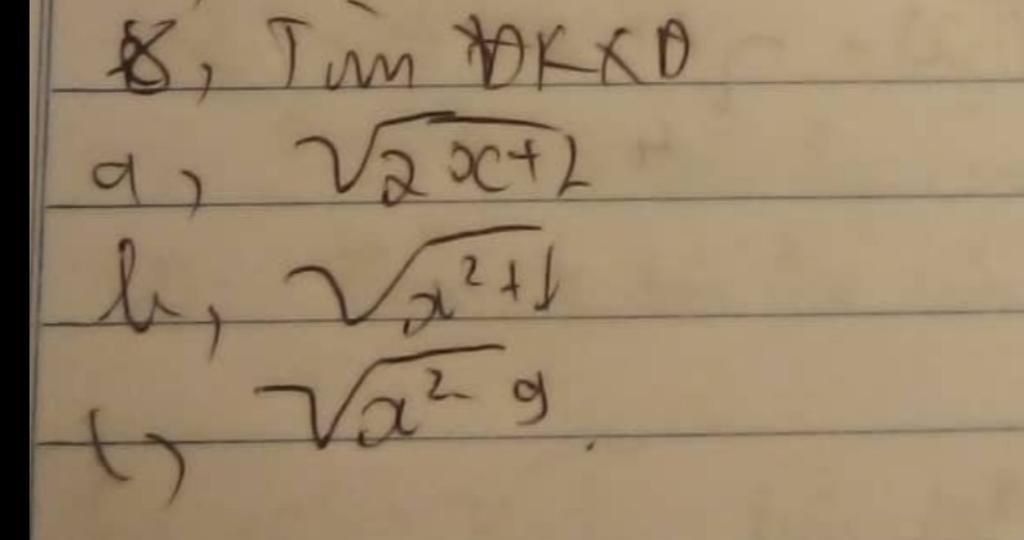 8, Tìm ĐKXĐ
a, √2x+2
b, √x²+1
c, √x²-9